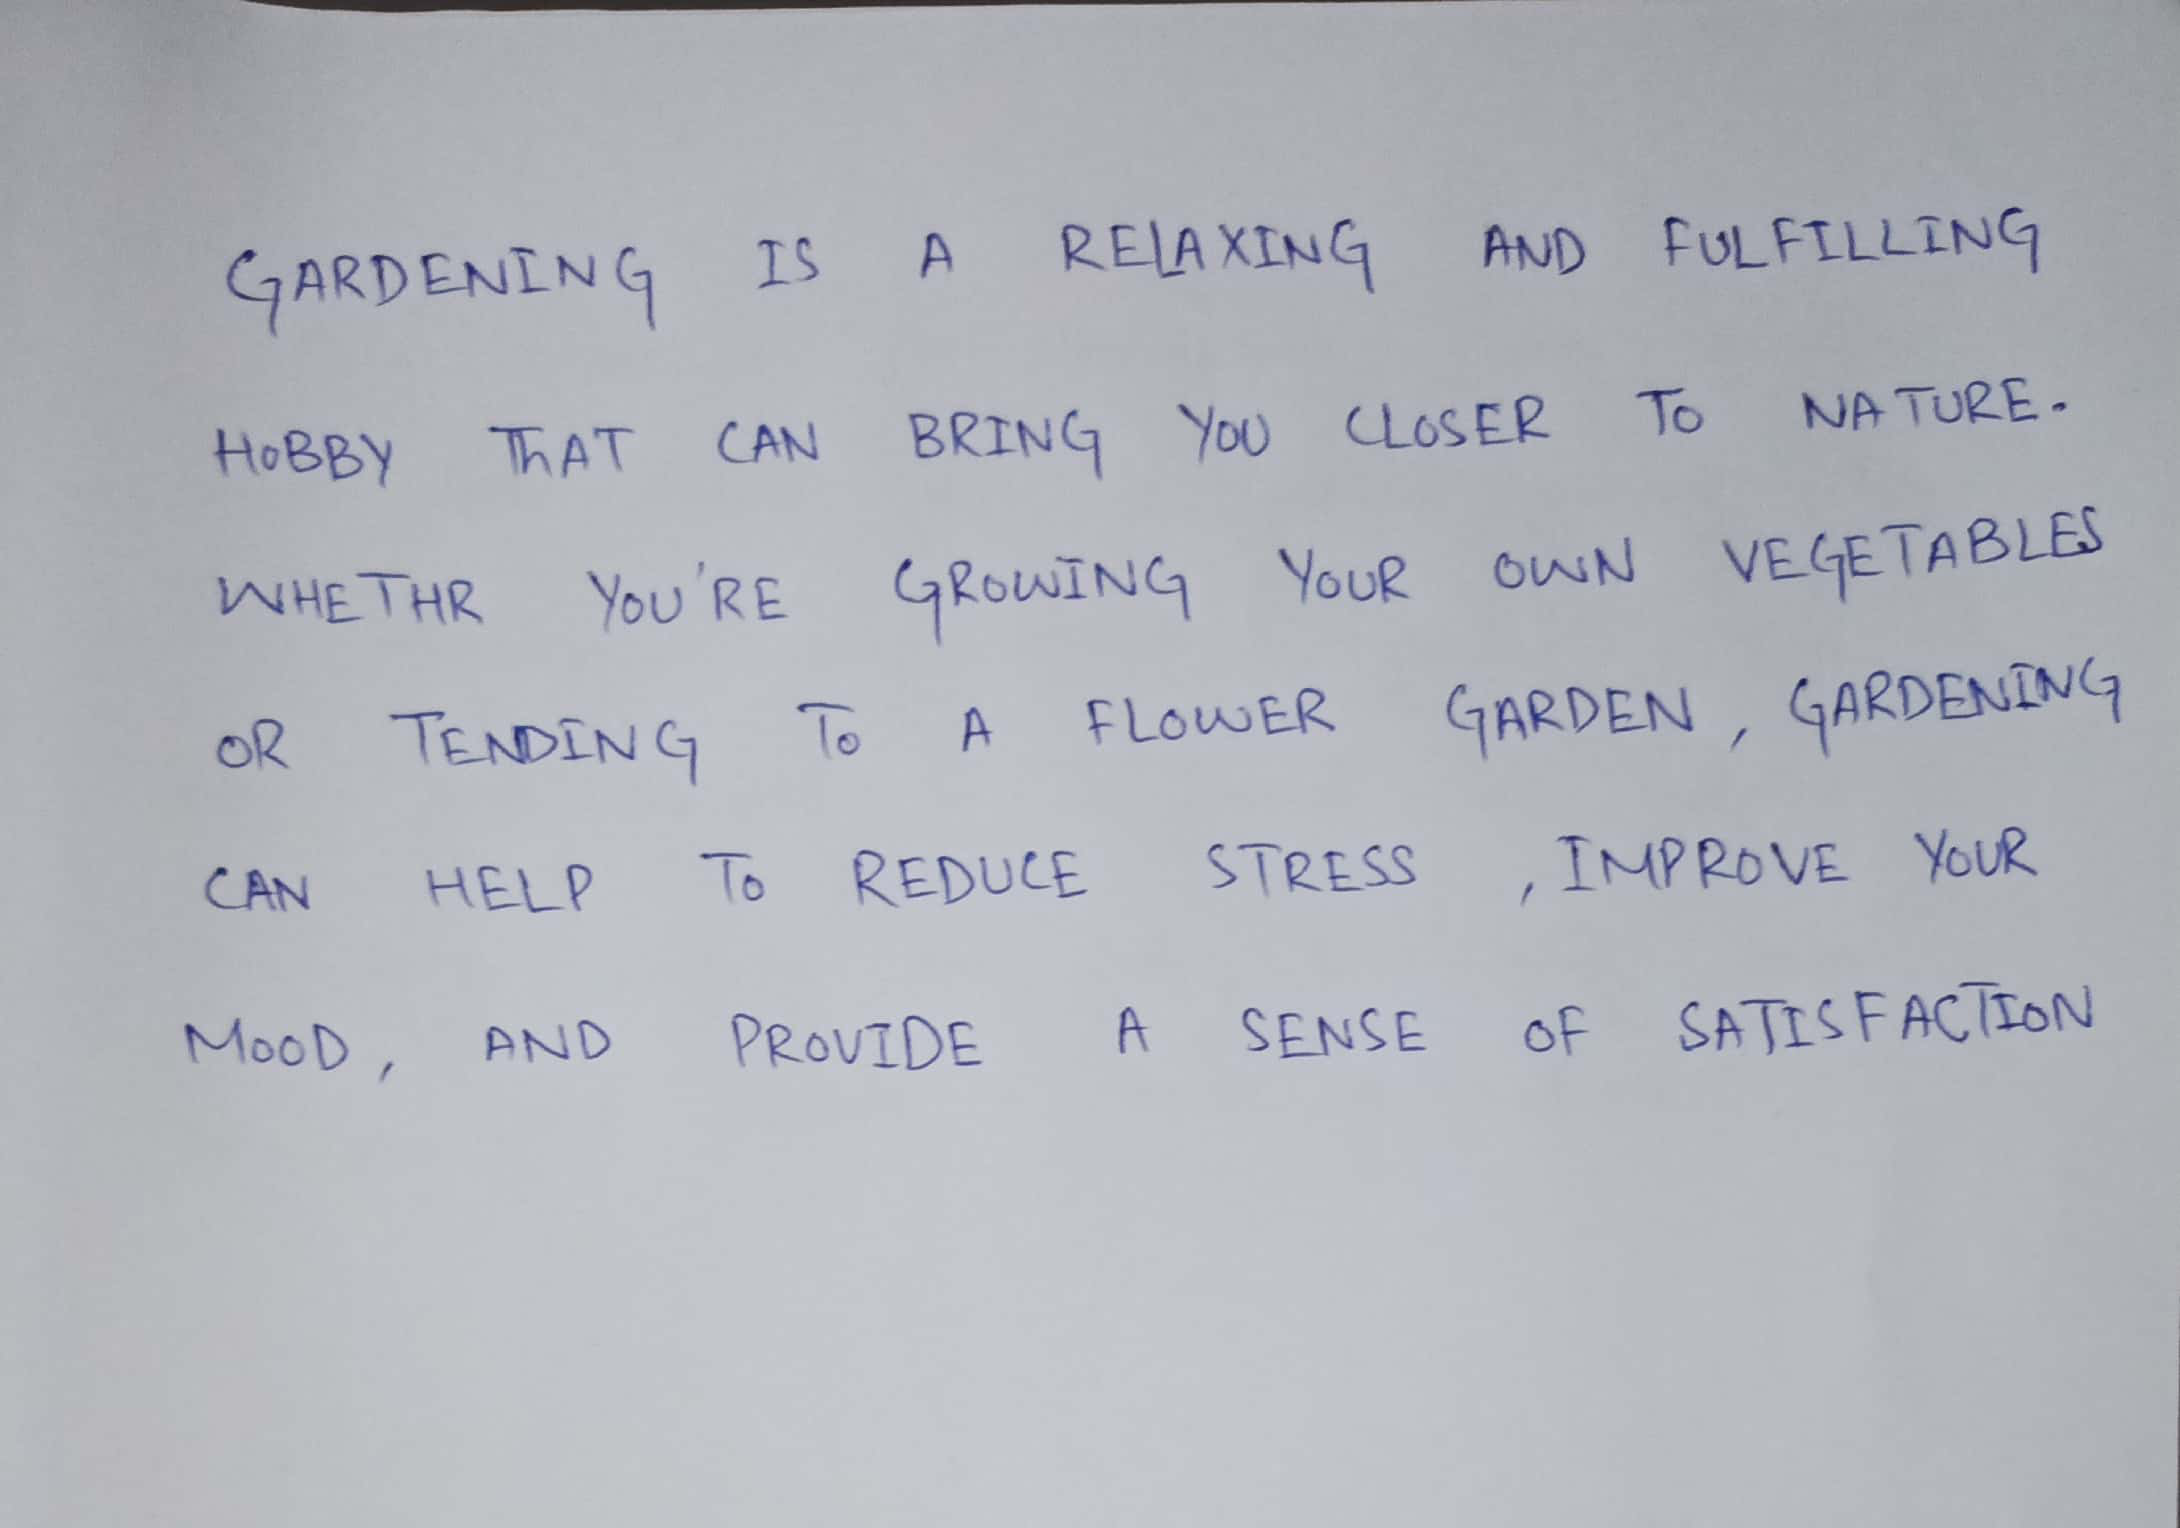 GARDENING IS A RELAXING AND FULFILLING
HOBBY ThAT CAN BRING YOU CLOSER TO NATURE.
WHETHR YOU'RE GROWING YOUR OWN VEGETABLES
OR TENDING TO A FLOWER GARDEN, GARDENING
CAN HELP TO REDUCE STRESS , IMPROVE YOUR
MOOD, AND PROVIDE A SENSE OF SATISFACTION